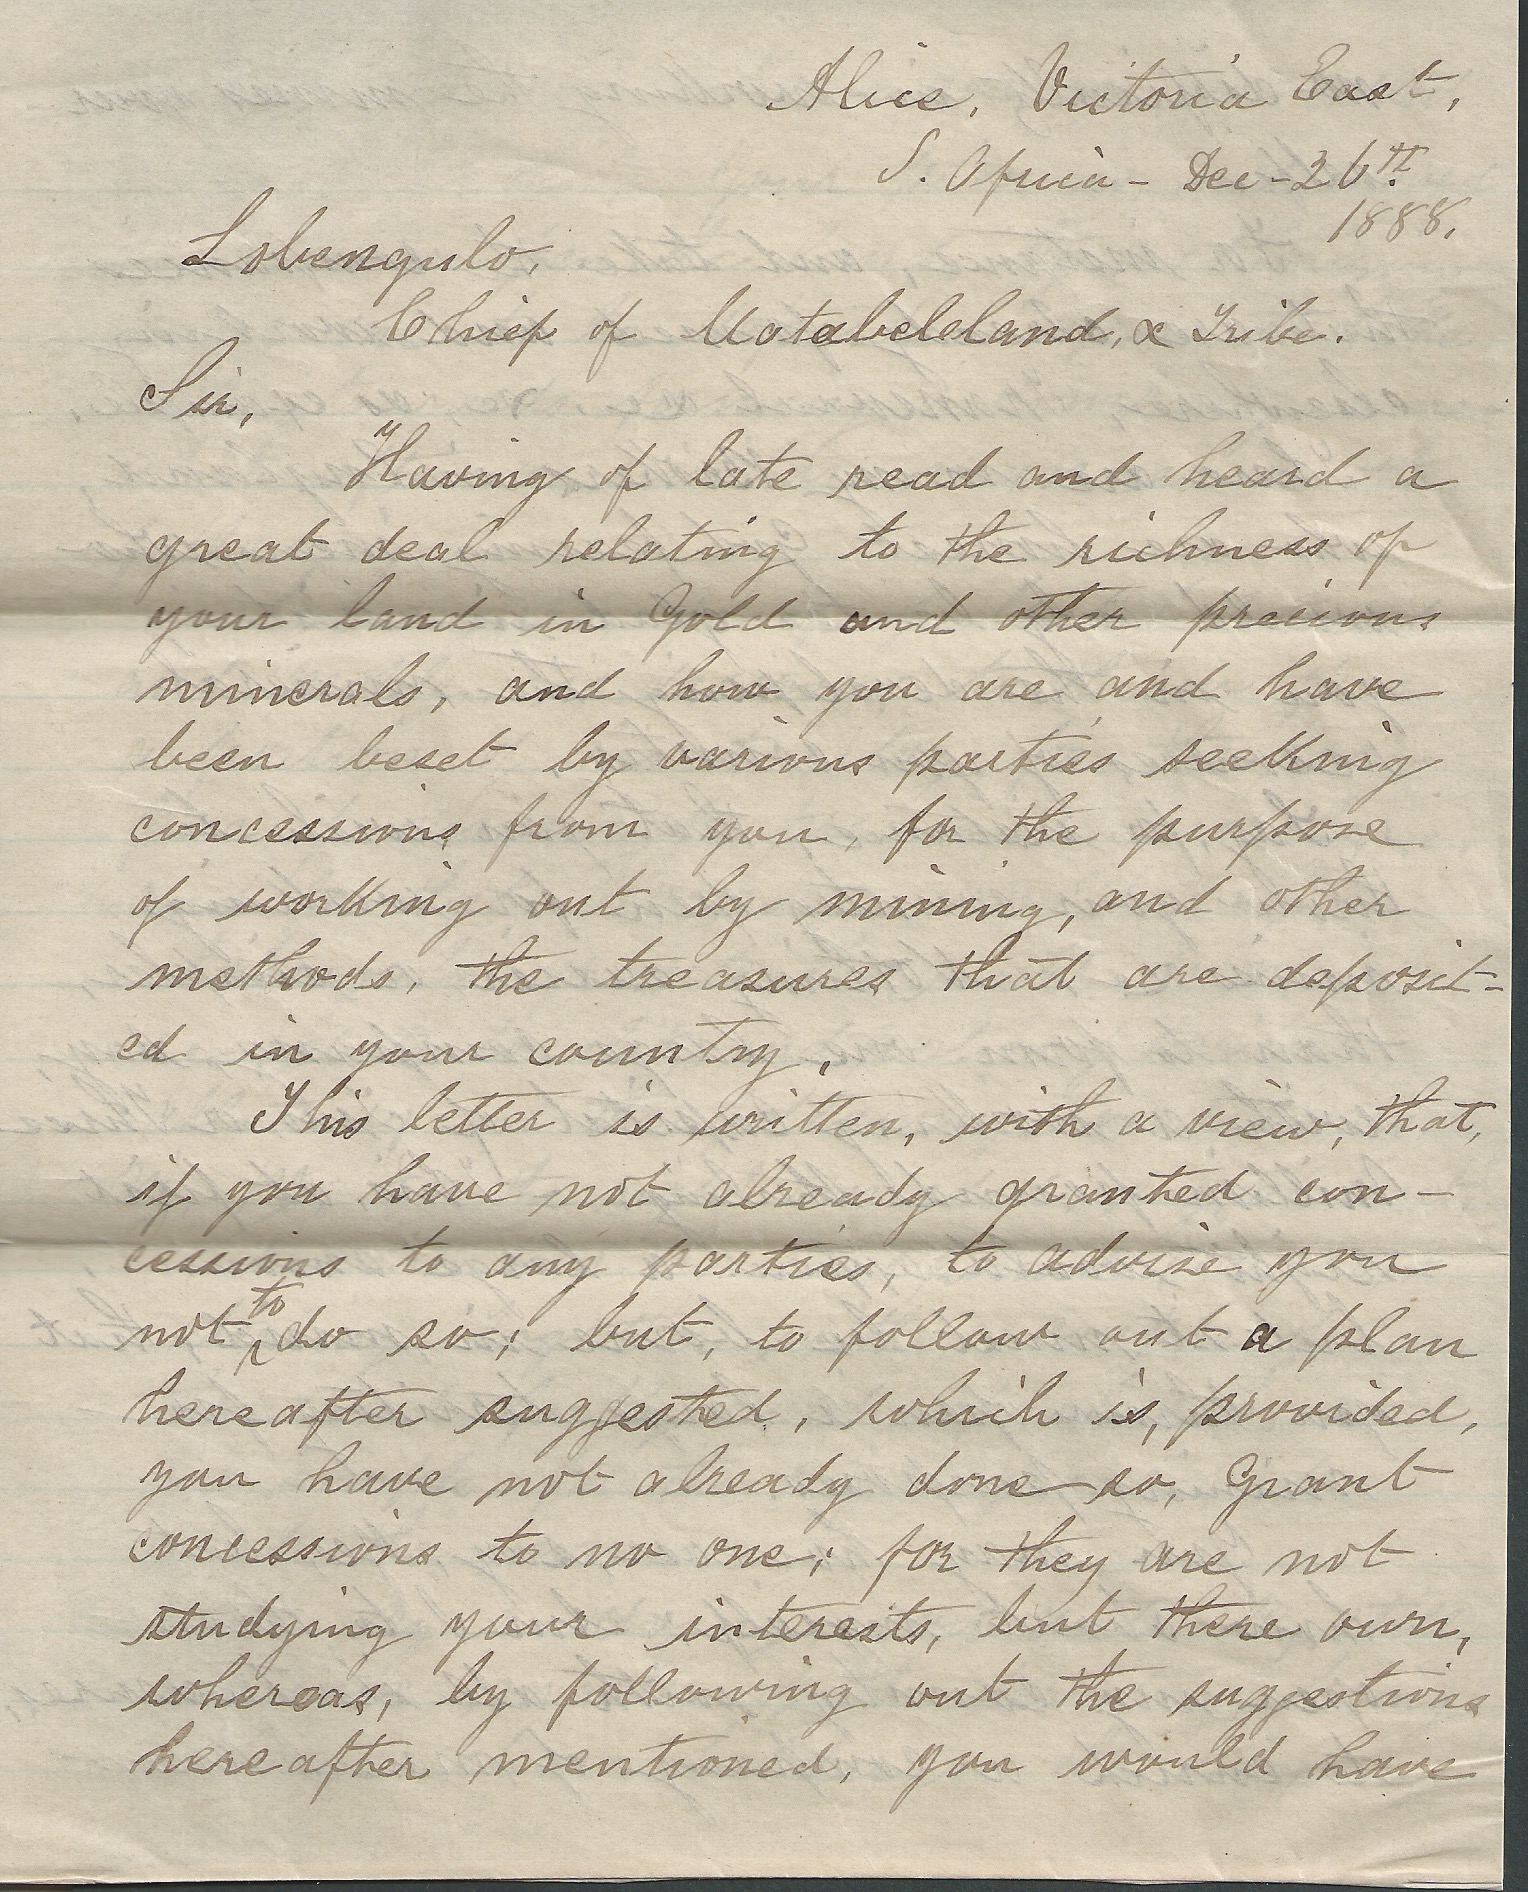 Alice, Victoria East,
S. Africa - Dec - 26th
1888.
Lobengulo,
Chief of Matabeleland, & Tribe.
Sir,
Having of late read and heard a
great deal relating to the richness of
your land in Gold and other precious
minerals, and how you are and have
been beset by various parties seeking
concessions from you, for the purpose
of working out by mining, and other
methods, the treasures that are deposit-
ed in your country.
This letter is written, with a view, that,
if you have not already granted con-
cessions to any parties, to advise you
not to do so; but, to follow out a plan
hereafter suggested, which is, provided,
you have not already done so, Grant
concessions to no one; for they are not
studying your interests, but there own,
whereas, by following out the suggestions
hereafter mentioned, you would have